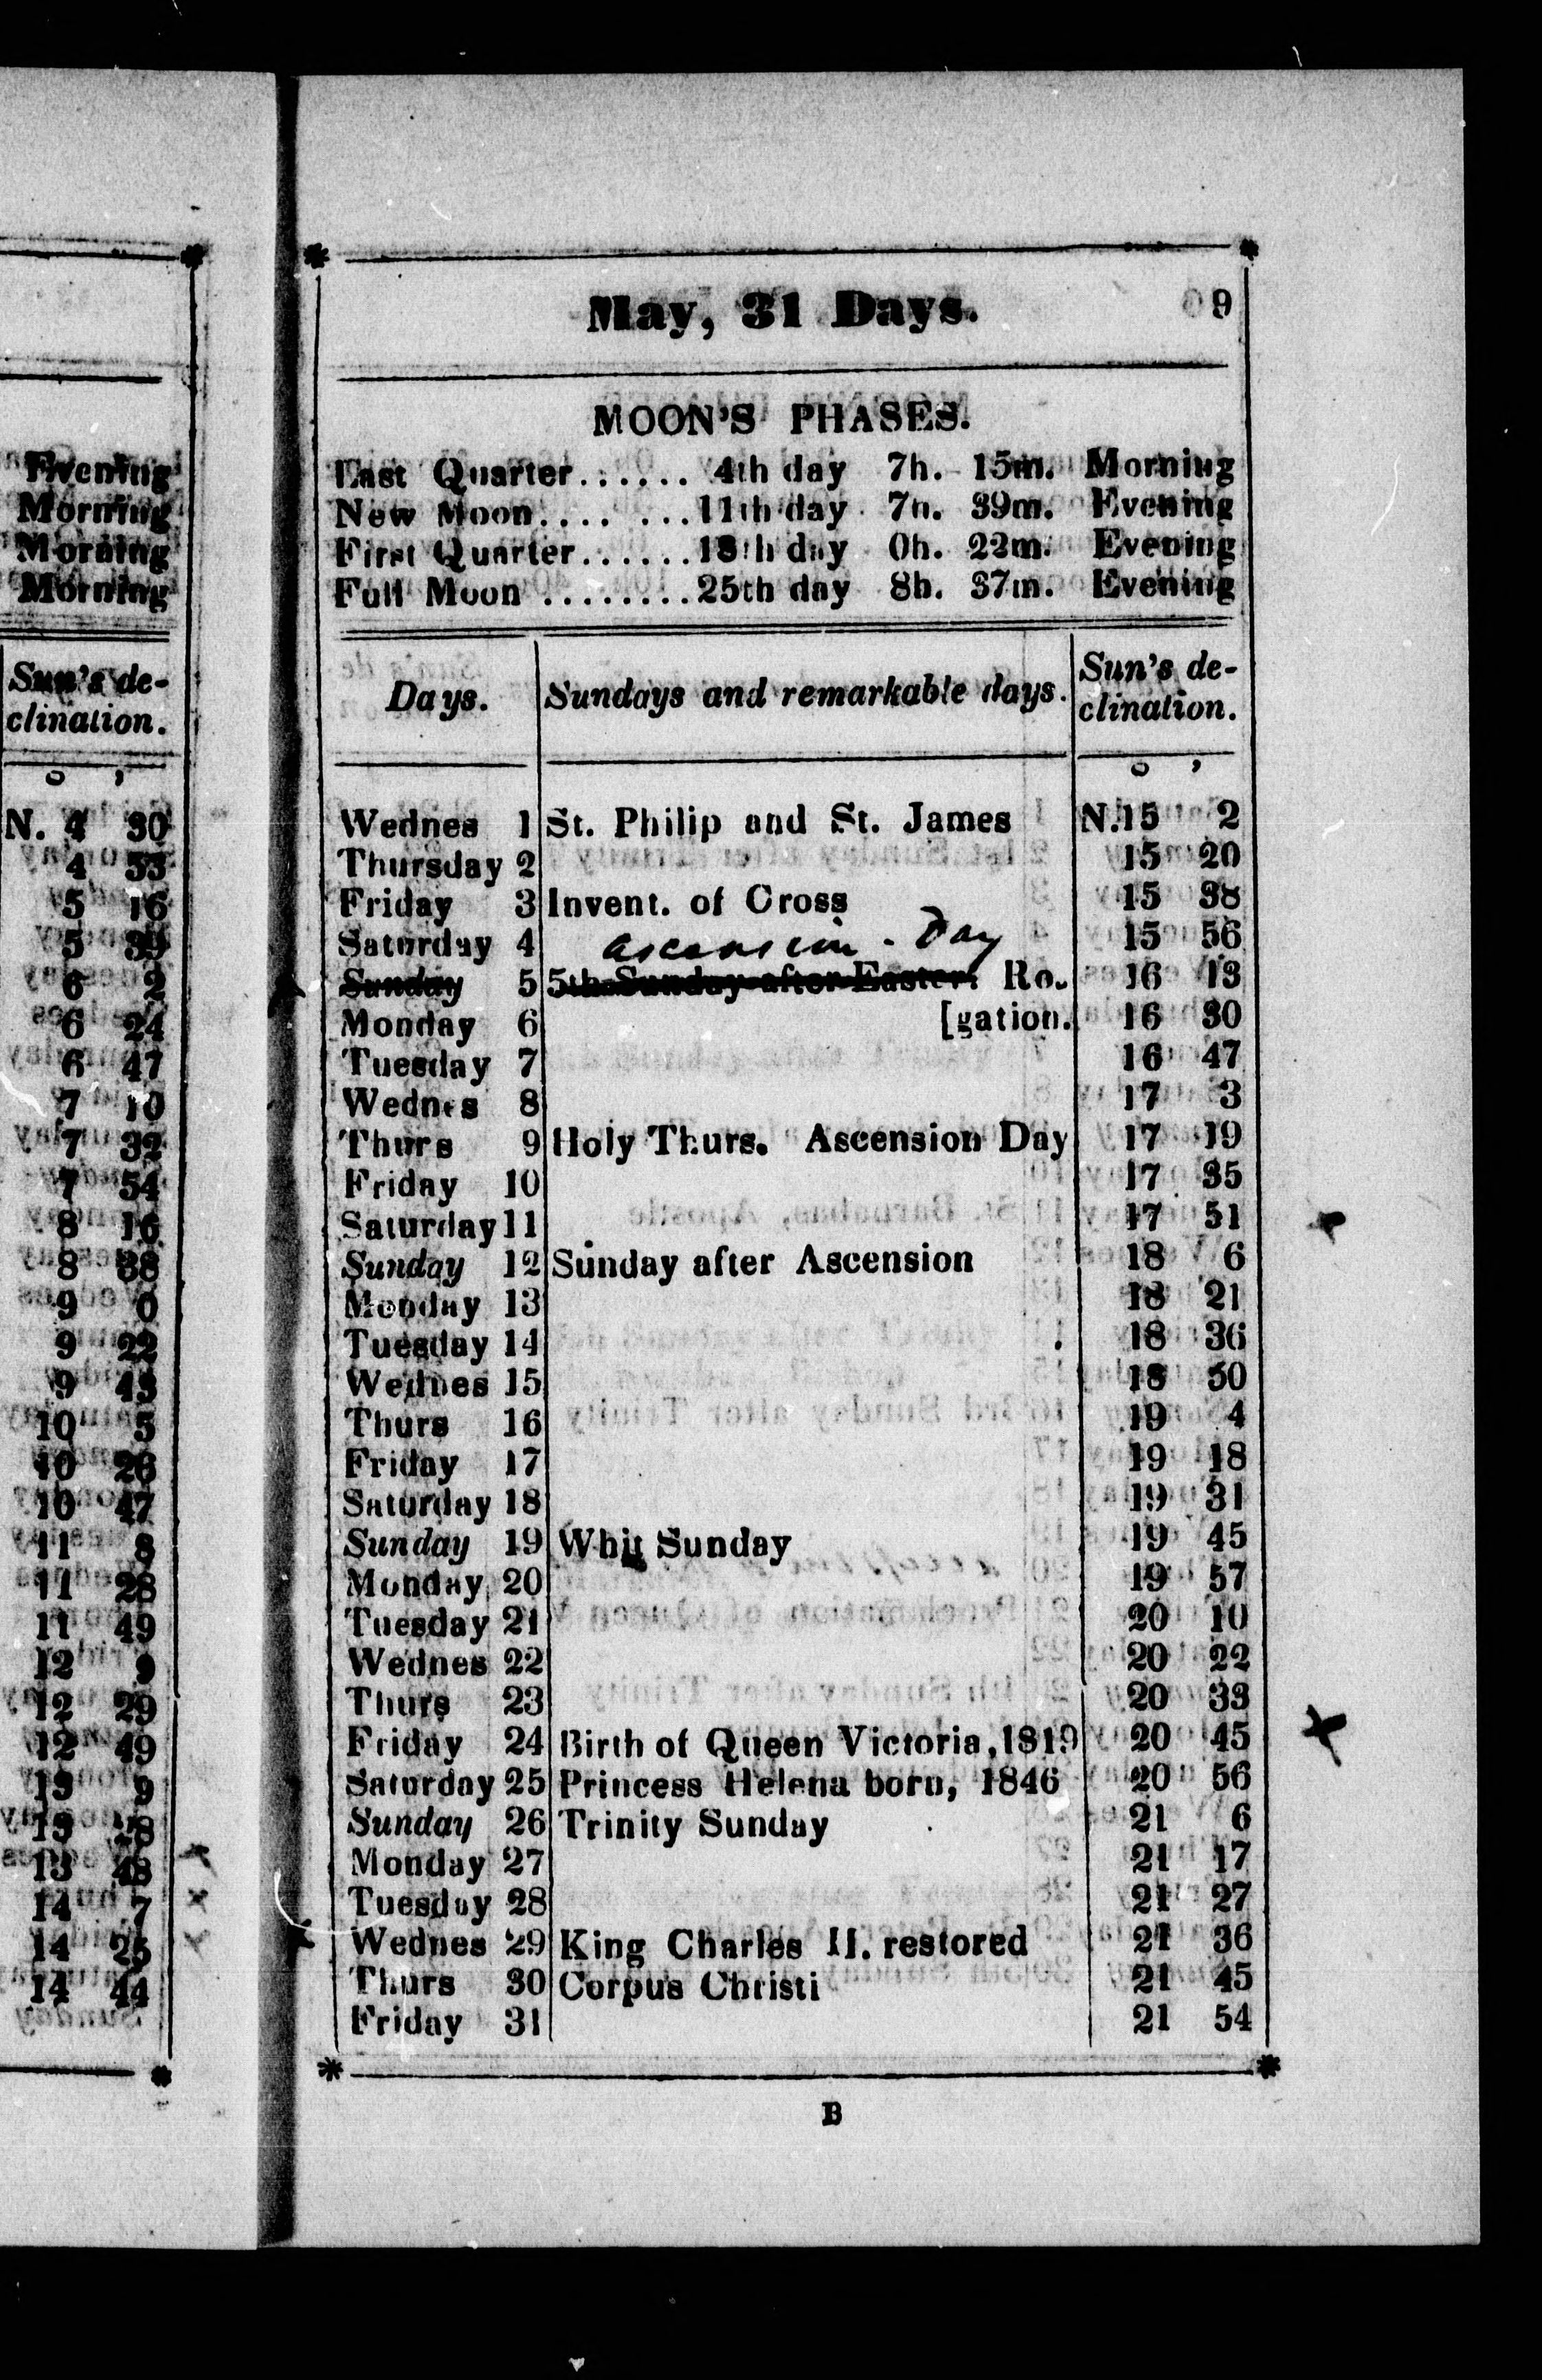 Evening
Morning
Morning
Morning
Sun's de-
clination.
o ,
N. 4 30
4 53
5 16
5 39
6 2
6 24
6 47
7 10
7 32
7 54
8 16
8 38
9 0
9 22
9 43
10 5
10 26
10 47
11 8
11 28
11 49
12 9
12 29
12 49
13 9
13 28
13 48
14 7
14 25
14 44
May, 31 Days. 9
MOON'S PHASES.
Last Quarter...... 4th day 7h. 15m. Morning
New Moon.... ...11th day 7h. 39m. Evening
First Quarter......18th day 0h. 22m. Evening
Full Moon ........25th day 8h. 37m. Evening
Days. Sundays and remarkable days. Sun's de-
clination.
o ,
Wednes 1 St. Philip and St. James N.15 2
Thursday 2 15 20
Friday 3 Invent. of Cross 15 38
Saturday 4 Ascension - Day 15 56
Sunday 5 5th Sunday after Easter. Ro. 16 13
Monday 6 [gation. 16 30
Tuesday 7 16 47
Wednes 8 17 3
Thurs 9 Holy Thurs. Ascension Day 17 19
Friday 10 17 35
Saturday 11 17 51
Sunday 12 Sunday after Ascension 18 6
Monday 13 18 21
Tuesday 14 18 36
Wednes 15 18 50
Thurs 16 19 4
Friday 17 19 18
Saturday 18 19 31
Sunday 19 Whit Sunday 19 45
Monday 20 19 57
Tuesday 21 20 10
Wednes 22 20 22
Thurs 23 20 33
Friday 24 Birth of Queen Victoria, 1819 20 45
Saturday 25 Princess Helena born, 1846 20 56
Sunday 26 Trinity Sunday 21 6
Monday 27 21 17
Tuesday 28 21 27
Wednes 29 King Charles II. restored 21 36
Thurs 30 Corpus Christi 21 45
Friday 31 21 54
B